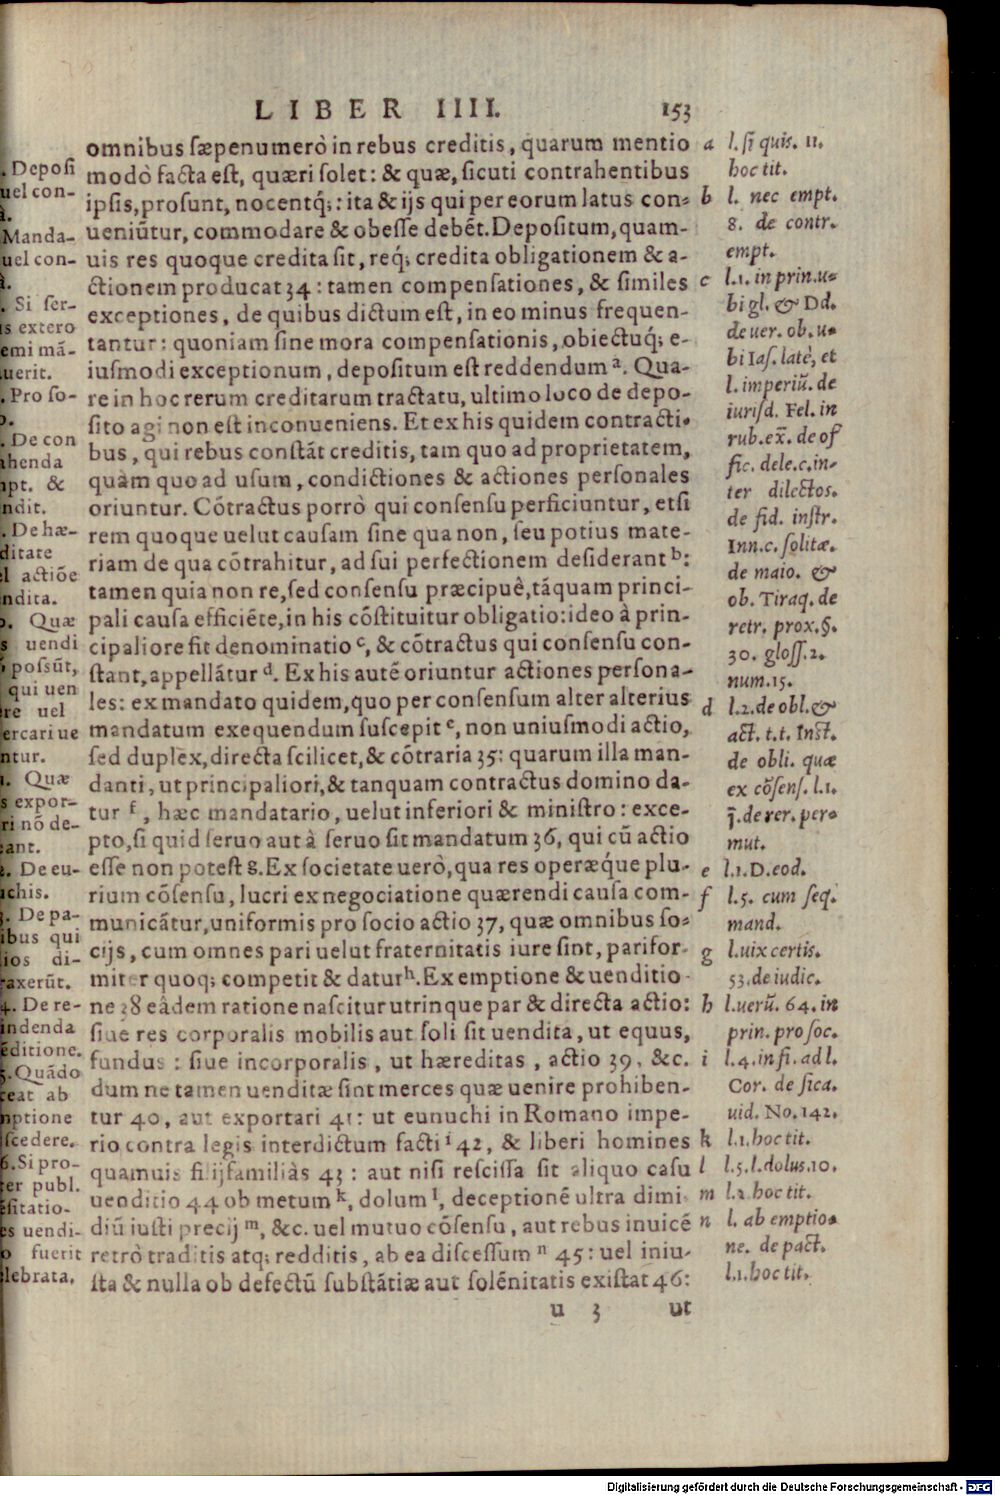 LIBER IIII. 153
omnibus sæpenumerò in rebus creditis, quarum mentio
modò facta est, quæri solet: & quæ, sicuti contrahentibus
ipsis, prosunt, nocentq́;: ita & ijs qui per eorum latus con-
ueniũtur, commodare & obesse debẽt. Depositum, quam-
uis res quoque credita sit, req́; credita obligationem & a-
ctionem producat 34: tamen compensationes, & similes
exceptiones, de quibus dictum est, in eo minus frequen-
tantur: quoniam sine mora compensationis, obiectuq́; e-
iusmodi exceptionum, depositum est reddendum ᵃ. Qua-
re in hoc rerum creditarum tractatu, ultimo loco de depo-
sito agi non est inconueniens. Et ex his quidem contracti-
bus, qui rebus constãt creditis, tam quo ad proprietatem,
quàm quo ad usum, condictiones & actiones personales
oriuntur. Cõtractus porrò qui consensu perficiuntur, etsi
rem quoque uelut causam sine qua non, seu potius mate-
riam de qua cõtrahitur, ad sui perfectionem desiderant ᵇ:
tamen quia non re, sed consensu præcipuè, tãquam princi-
pali causa efficiẽte, in his cõstituitur obligatio: ideo à prin-
cipaliore fit denominatio ᶜ, & cõtractus qui consensu con-
stant, appellãtur ᵈ. Ex his autẽ oriuntur actiones persona-
les: ex mandato quidem, quo per consensum alter alterius
mandatum exequendum suscepit ᵉ, non uniusmodi actio,
sed duplex, directa scilicet, & cõtraria 35: quarum illa man-
danti, ut principaliori, & tanquam contractus domino da-
tur ᶠ, hæc mandatario, uelut inferiori & ministro: exce-
pto, si quid seruo aut à seruo sit mandatum 36, qui cũ actio
esse non potest ᵍ. Ex societate uerò, qua res operæq́ue plu-
rium cõsensu, lucri ex negociatione quærendi causa com-
municãtur, uniformis pro socio actio 37, quæ omnibus so-
cijs, cum omnes pari uelut fraternitatis iure sint, parifor-
miter quoq; competit & datur ʰ. Ex emptione & uenditio-
ne 38 eâdem ratione nascitur utrinque par & directa actio:
siue res corporalis mobilis aut soli sit uendita, ut equus,
fundus: siue incorporalis, ut hæreditas, actio 39, &c.
dum ne tamen uenditæ sint merces quæ uenire prohiben-
tur 40, aut exportari 41: ut eunuchi in Romano impe-
rio contra legis interdictum facti ⁱ 42, & liberi homines
quamuis filijfamiliâs 43: aut nisi rescissa sit aliquo casu
uenditio 44 ob metum ᵏ, dolum ˡ, deceptionẽ ultra dimi-
diũ iusti precij ᵐ, &c. uel mutuo cõsensu, aut rebus inuicẽ
retrò traditis atq; redditis, ab ea discessum ⁿ 45: uel iniu-
sta & nulla ob defectũ substãtiæ aut solẽnitatis existat 46:
u 3 ut
a l. si quis. 11.
hoc tit.
b l. nec empt.
8. de contr.
empt.
c l.1. in prin. u-
bi gl. & Dd.
de uer. ob. u-
bi Ias. latè, et
l. imperiũ. de
iurisd. Fel. in
rub. ex̃. de of
fic. dele. c. in-
ter dilectos.
de fid. instr.
Inn. c. solitæ.
de maio. &
ob. Tiraq. de
retr. prox. §.
30. gloss. 2.
num. 15.
d l.2. de obl. &
act. t.t. Inst.
de obli. quæ
ex cõsens. l.1.
de rer. per-
mut.
e l.1. D. eod.
f l.5. cum seq.
mand.
g l. uix certis.
53. de iudic.
h l. uerũ. 64. in
prin. pro soc.
i l.4. in fi. ad l.
Cor. de sica.
uid. No. 142.
k l.1. hoc tit.
l l.5. l. dolus. 10.
m l.2 hoc tit.
n l. ab emptio-
ne. de pact.
l.1. hoc tit.
. Deposi
uel con-
à.
Manda-
uel con-
à.
. Si ser-
s extero
emi mã-
uerit.
. Pro so-
o.
. De con
ahenda
pt. &
ndit.
. De hæ-
ditate
l actiõe
ndita.
o. Quæ
s uendi
possũt,
qui uen
re uel
ercari ue
ntur.
1. Quæ
s expor-
ri nõ de-
ant.
2. De eu-
chis.
3. De pa-
ibus qui
ios di-
raxerũt.
4. De re-
indenda
editione.
5. Quãdo
ceat ab
nptione
scedere.
6. Si pro-
ter publ.
ésitatio-
es uendi-
o fuerit
lebrata.
Digitalisierung gefördert durch die Deutsche Forschungsgemeinschaft - DFG